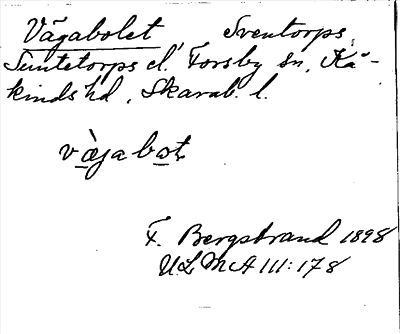 Vägabolet, Sventorps,
Suntetorps el. Forsby sn, Kå-
kinds hd, Skarab. l.
vàgabot
F. Bergstrand 1898
ULMA 111:178